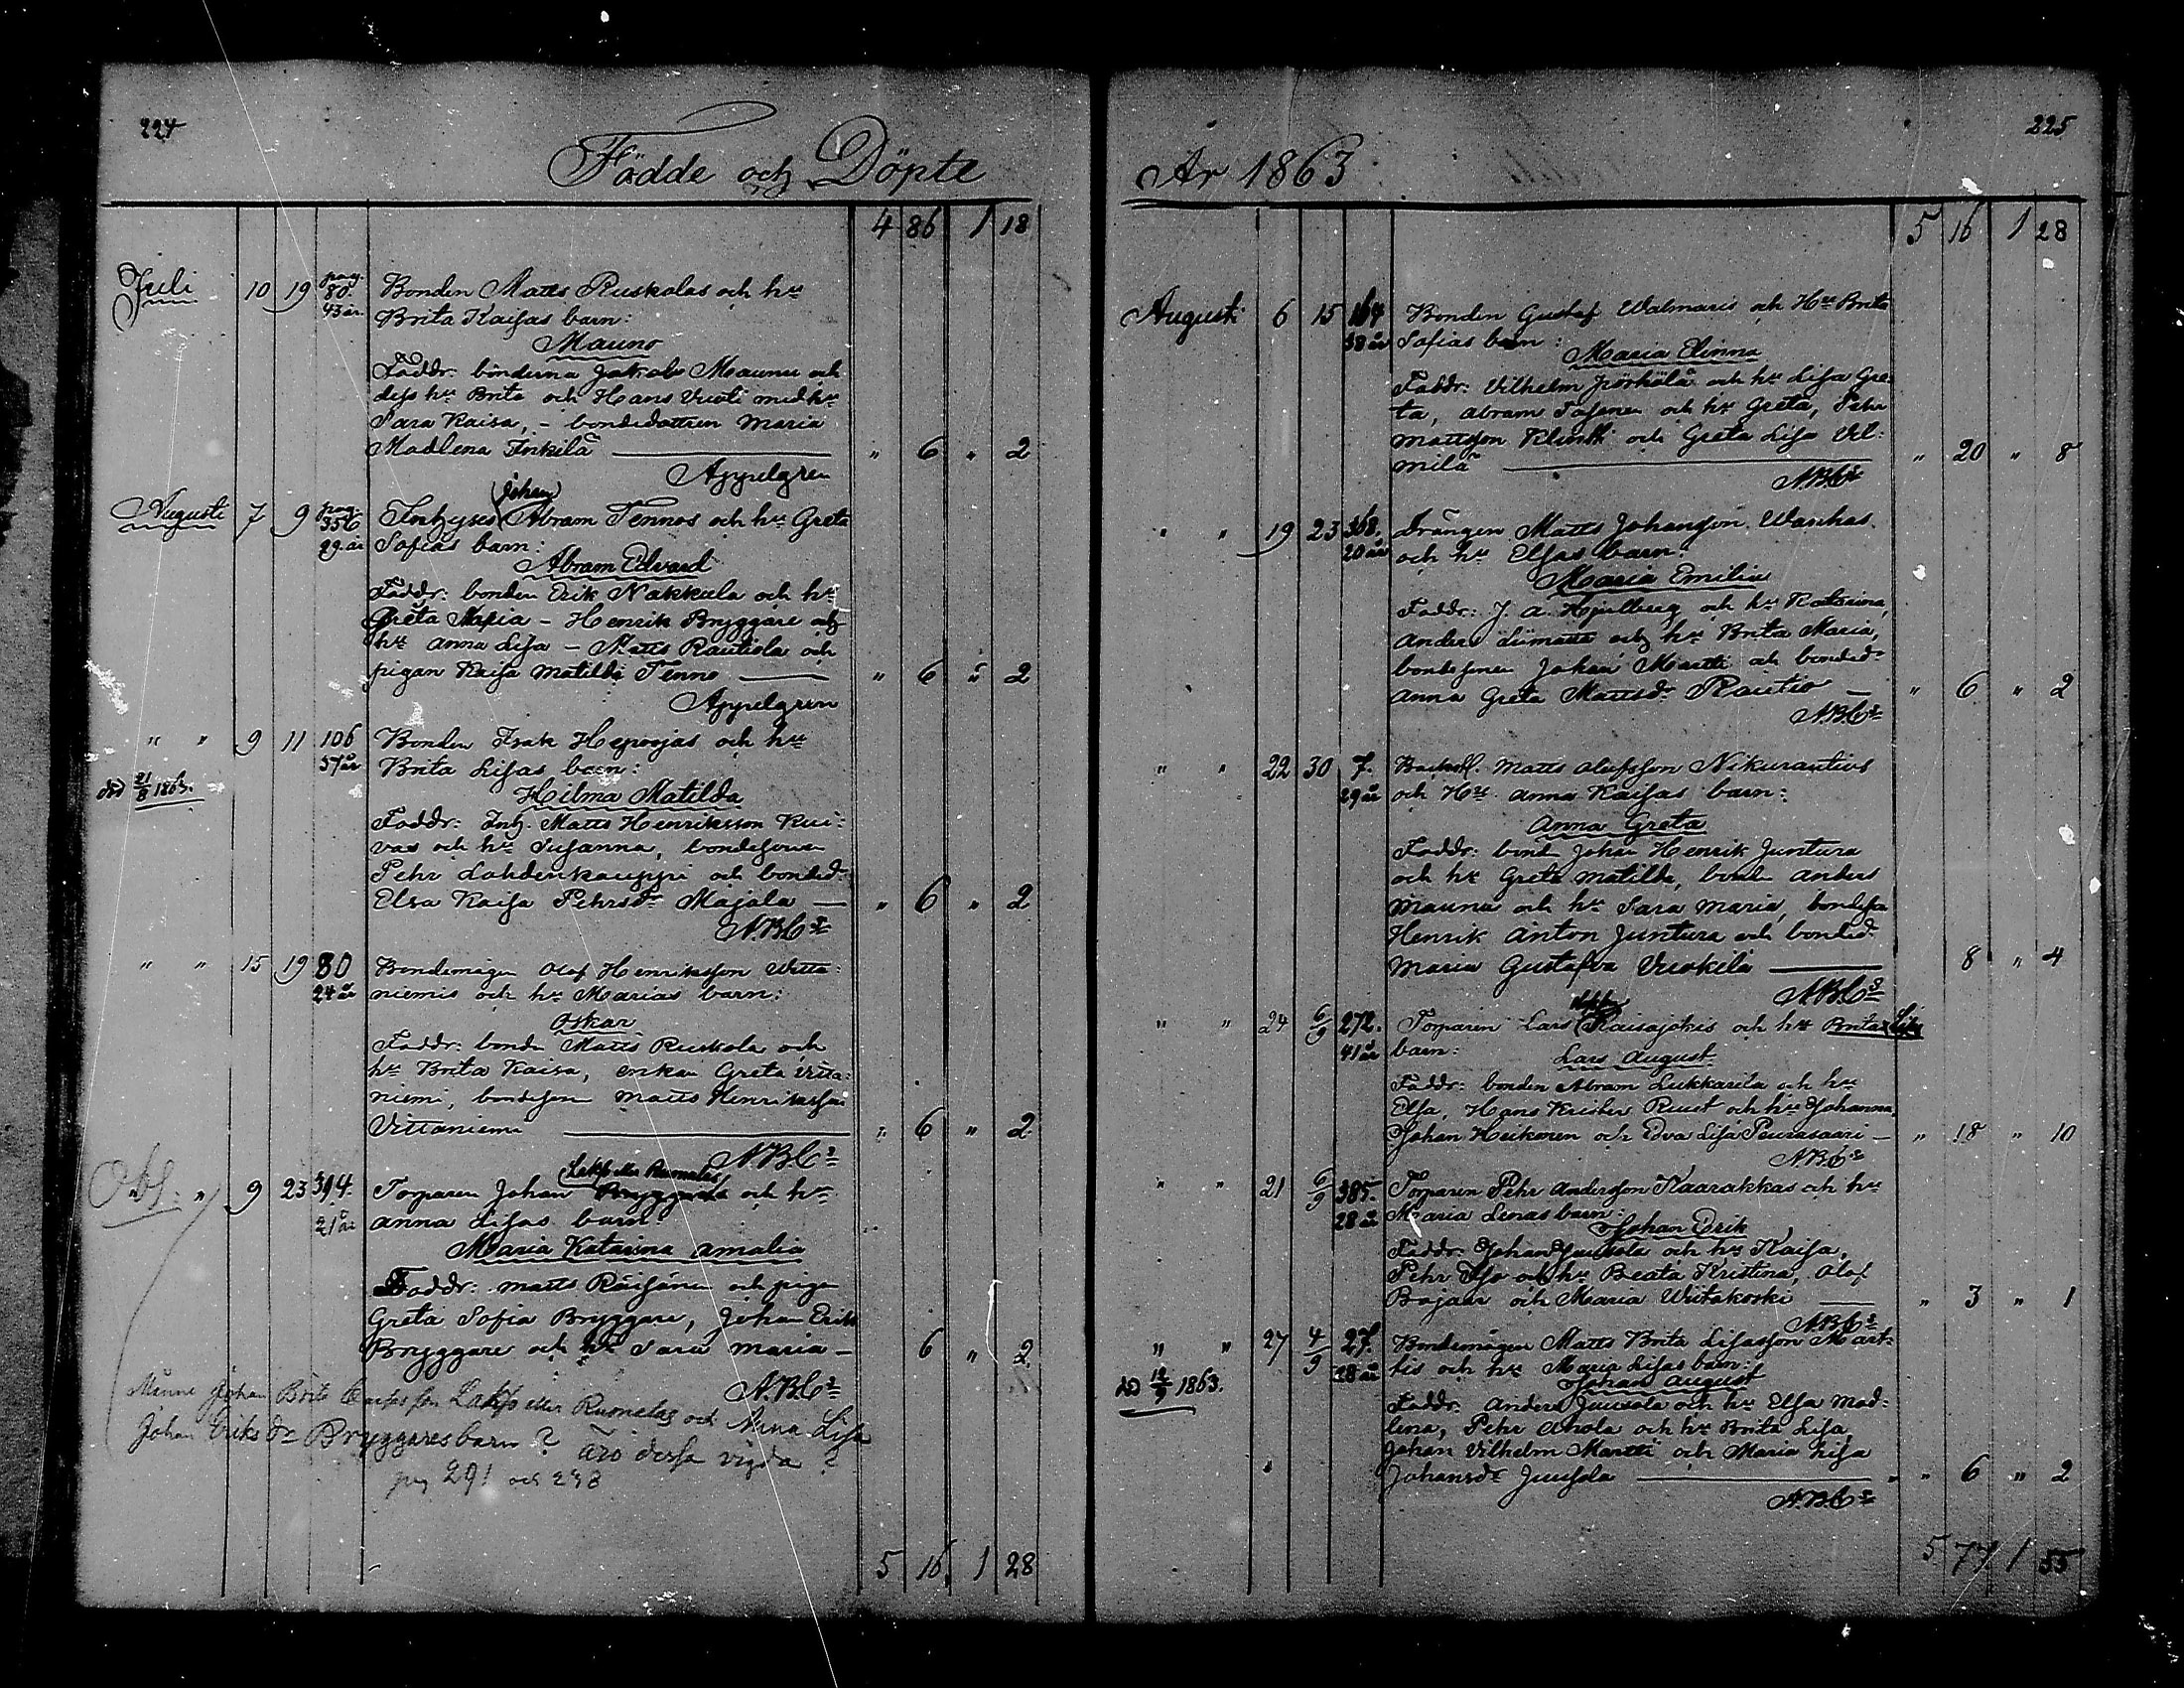 224
Födde och Döpte
4 86 1 18
Juli 10 19 pag. 80. Bonden Matts Ruskolas och hu
43 år Brita Kaisas barn:
Mauno
Faddr: bönderna Jakob Maunu och
dess hu Brita och Hans Vuoti med hu
Sara Kaisa, - bondedottren Maria
Madlena Inkilä " 6 " 2
Appelgren
Johan
Augusti 7 9 pag. 356 Inhyses Abram Tennos och hu Greta
29 år Sofias barn:
Abram Edvard
Faddr: bonden Erik Nakkula och hu
Greta Maria - Henrik Bryggare och
hu Anna Lisa - Matts Rautiola och
pigan Kaisa Matilda Tenno " 6 " 2
Appelgren
" " 9 11 106 Bonden Isak Hepoojas och hu
37 år Brita Lisas barn:
död 21/8 1863.
Hilma Matilda
Faddr: Inh. Matts Henriksson Kui-
vas och hu Susanna, bondesonen
Pehr Lahdenkauppi och bonded.
Elsa Kaisa Pehrsdr Majala " 6 " 2
N.B.Cs
" " 15 19 80 Bondemågen Olof Henriksson Uitta-
24 år niemis och hu Marias barn:
Oskar
Faddr: bonde Matts Ruskola och
hu Brita Kaisa, enkan Greta Uitta-
niemi, bondeson Matts Henriksson
Uittaniemi " 6 " 2
N.B.Cs
Lakso eller Rumelas
Obs: " 9 23 394. Torparen Johan Bryggares och hu
21 år Anna Lisas barn:
Maria Katarina Amalia
Faddr: Matts Räisänen och piga
Greta Sofia Bryggare, Johan Erik
Bryggare och hu Sara Maria - 6 " 2
N.B.Cs
Månne Johan Brita Lakso eller Rumelas och Anna Lisa
Johan Eriksdr Bryggares barn? Äro dessa vigda?
pag 291 och 293
5 16 1 28
225
År 1863
5 16 1 28
Augusti 6 15 164 Bonden Gustaf Walmaris och Hu Brita
38 år Sofias barn:
Maria Elinna
Faddr: Vilhelm Jörhölä och hu Lisa Gre-
ta, Abram Tasanen och hu Greta, Pehr
Mattsson Klinkti och Greta Lisa Vil-
milä " 20 " 8
N.B.Cs
" " 19 23 368. Drängen Matts Johansson Wanhas
20 år och hu Elsas barn:
Maria Emilia
Faddr: J. A. Hjulberg och hu Katarina,
Anders Liimatta och hu Brita Maria,
bondesonen Johan Martti och bonded.
Anna Greta Mattsdr Rautio " 6 " 2
N.B.Cs
" " 22 30 7. Backst. Matts Olofsson Nikurautios
29 år och Hu Anna Kaisas barn:
Anna Greta
Faddr: bond. Johan Henrik Juntura
och hu Greta Matilda, bonde Anders
Maunu och hu Sara Maria, bondeson
Henrik Anton Juntura och bonded.
Maria Gustafva Vuokila 8 " 4
N.B.Cs
" " 24 6/9 272. Torparen Lars Kaisajokis och hu Brita Lisas
41 år barn:
Lars August
Faddr: bonden Abram Lukkarila och hu
Elsa, Hans Krister Ruut och hu Johanna,
Johan Heikonen och Edva Lisa Peurasaari - " 18 " 10
N.B.Cs
" " 21 6/9 385. Torparen Pehr Andersson Kaarakkas och hu
28 år Maria Lenas barn:
Johan Erik
Faddr: Johan Juusola och hu Kaisa,
Pehr Iso och hu Beata Kristina, Olof
Bajaar och Maria Wiitakoski " 3 " 1
N.B.Cs
" " 27 4/9 27. Bondemågen Matts Brita Lisasson Mart-
28 år tis och hu Maria Lisas barn:
död 12/9 1863.
Johan August
Faddr: Anders Juusola och hu Elsa Mad-
lena, Pehr Ahola och hu Brita Lisa,
Johan Vilhelm Martti och Maria Lisa
Johansdr Juusola " 6 " 2
N.B.Cs
5 77 1 55